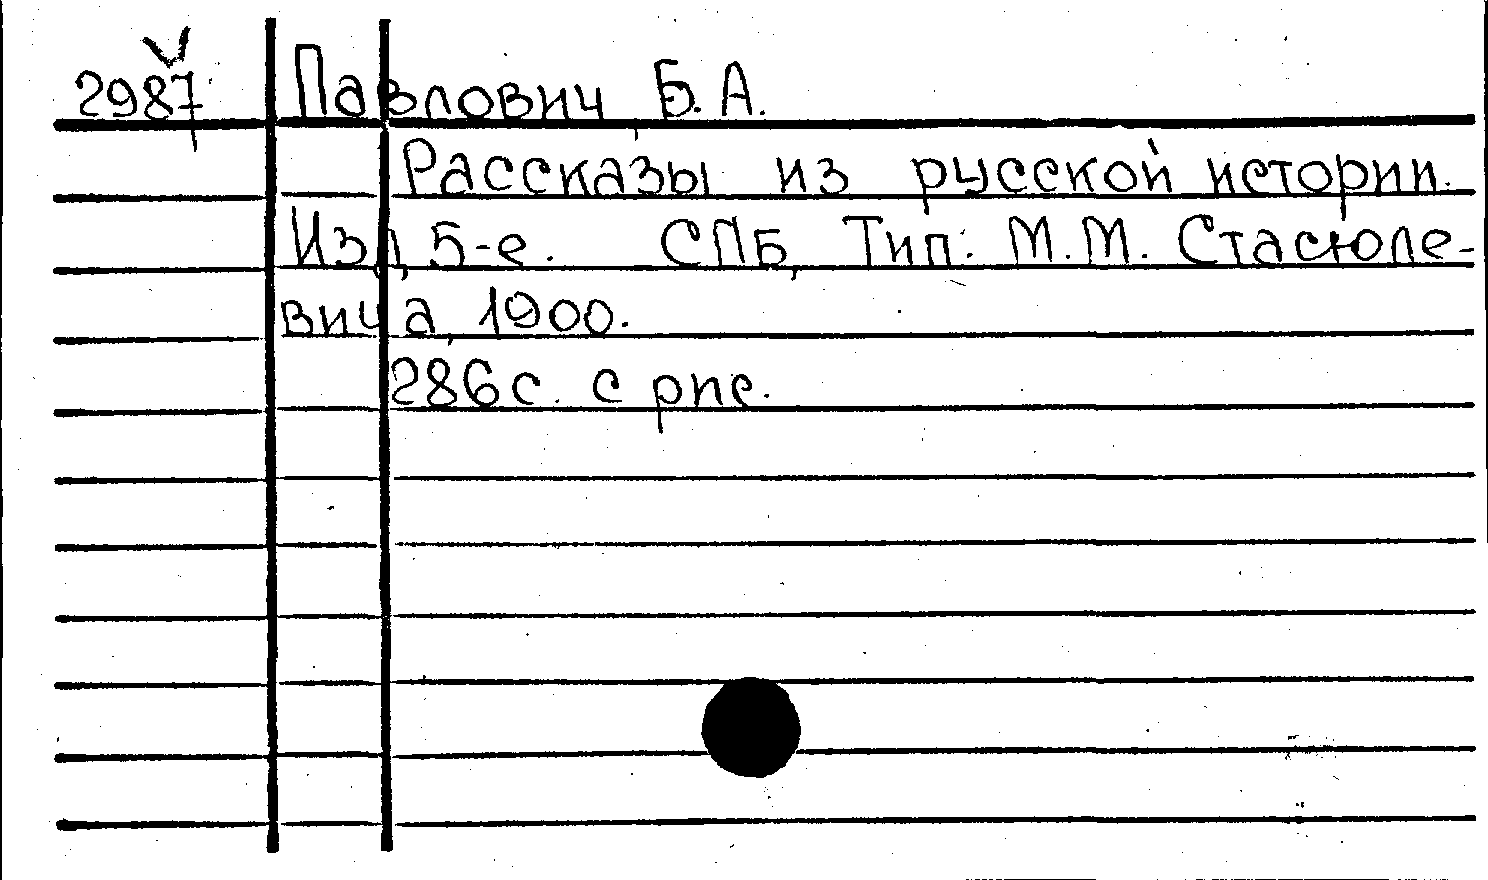 2987 Павлович Б. А.
Рассказы из русской истории.
Изд, 5-е. СПБ, Тип. М.М. Стасюле-
вича, 1900.
286 с. с рис.